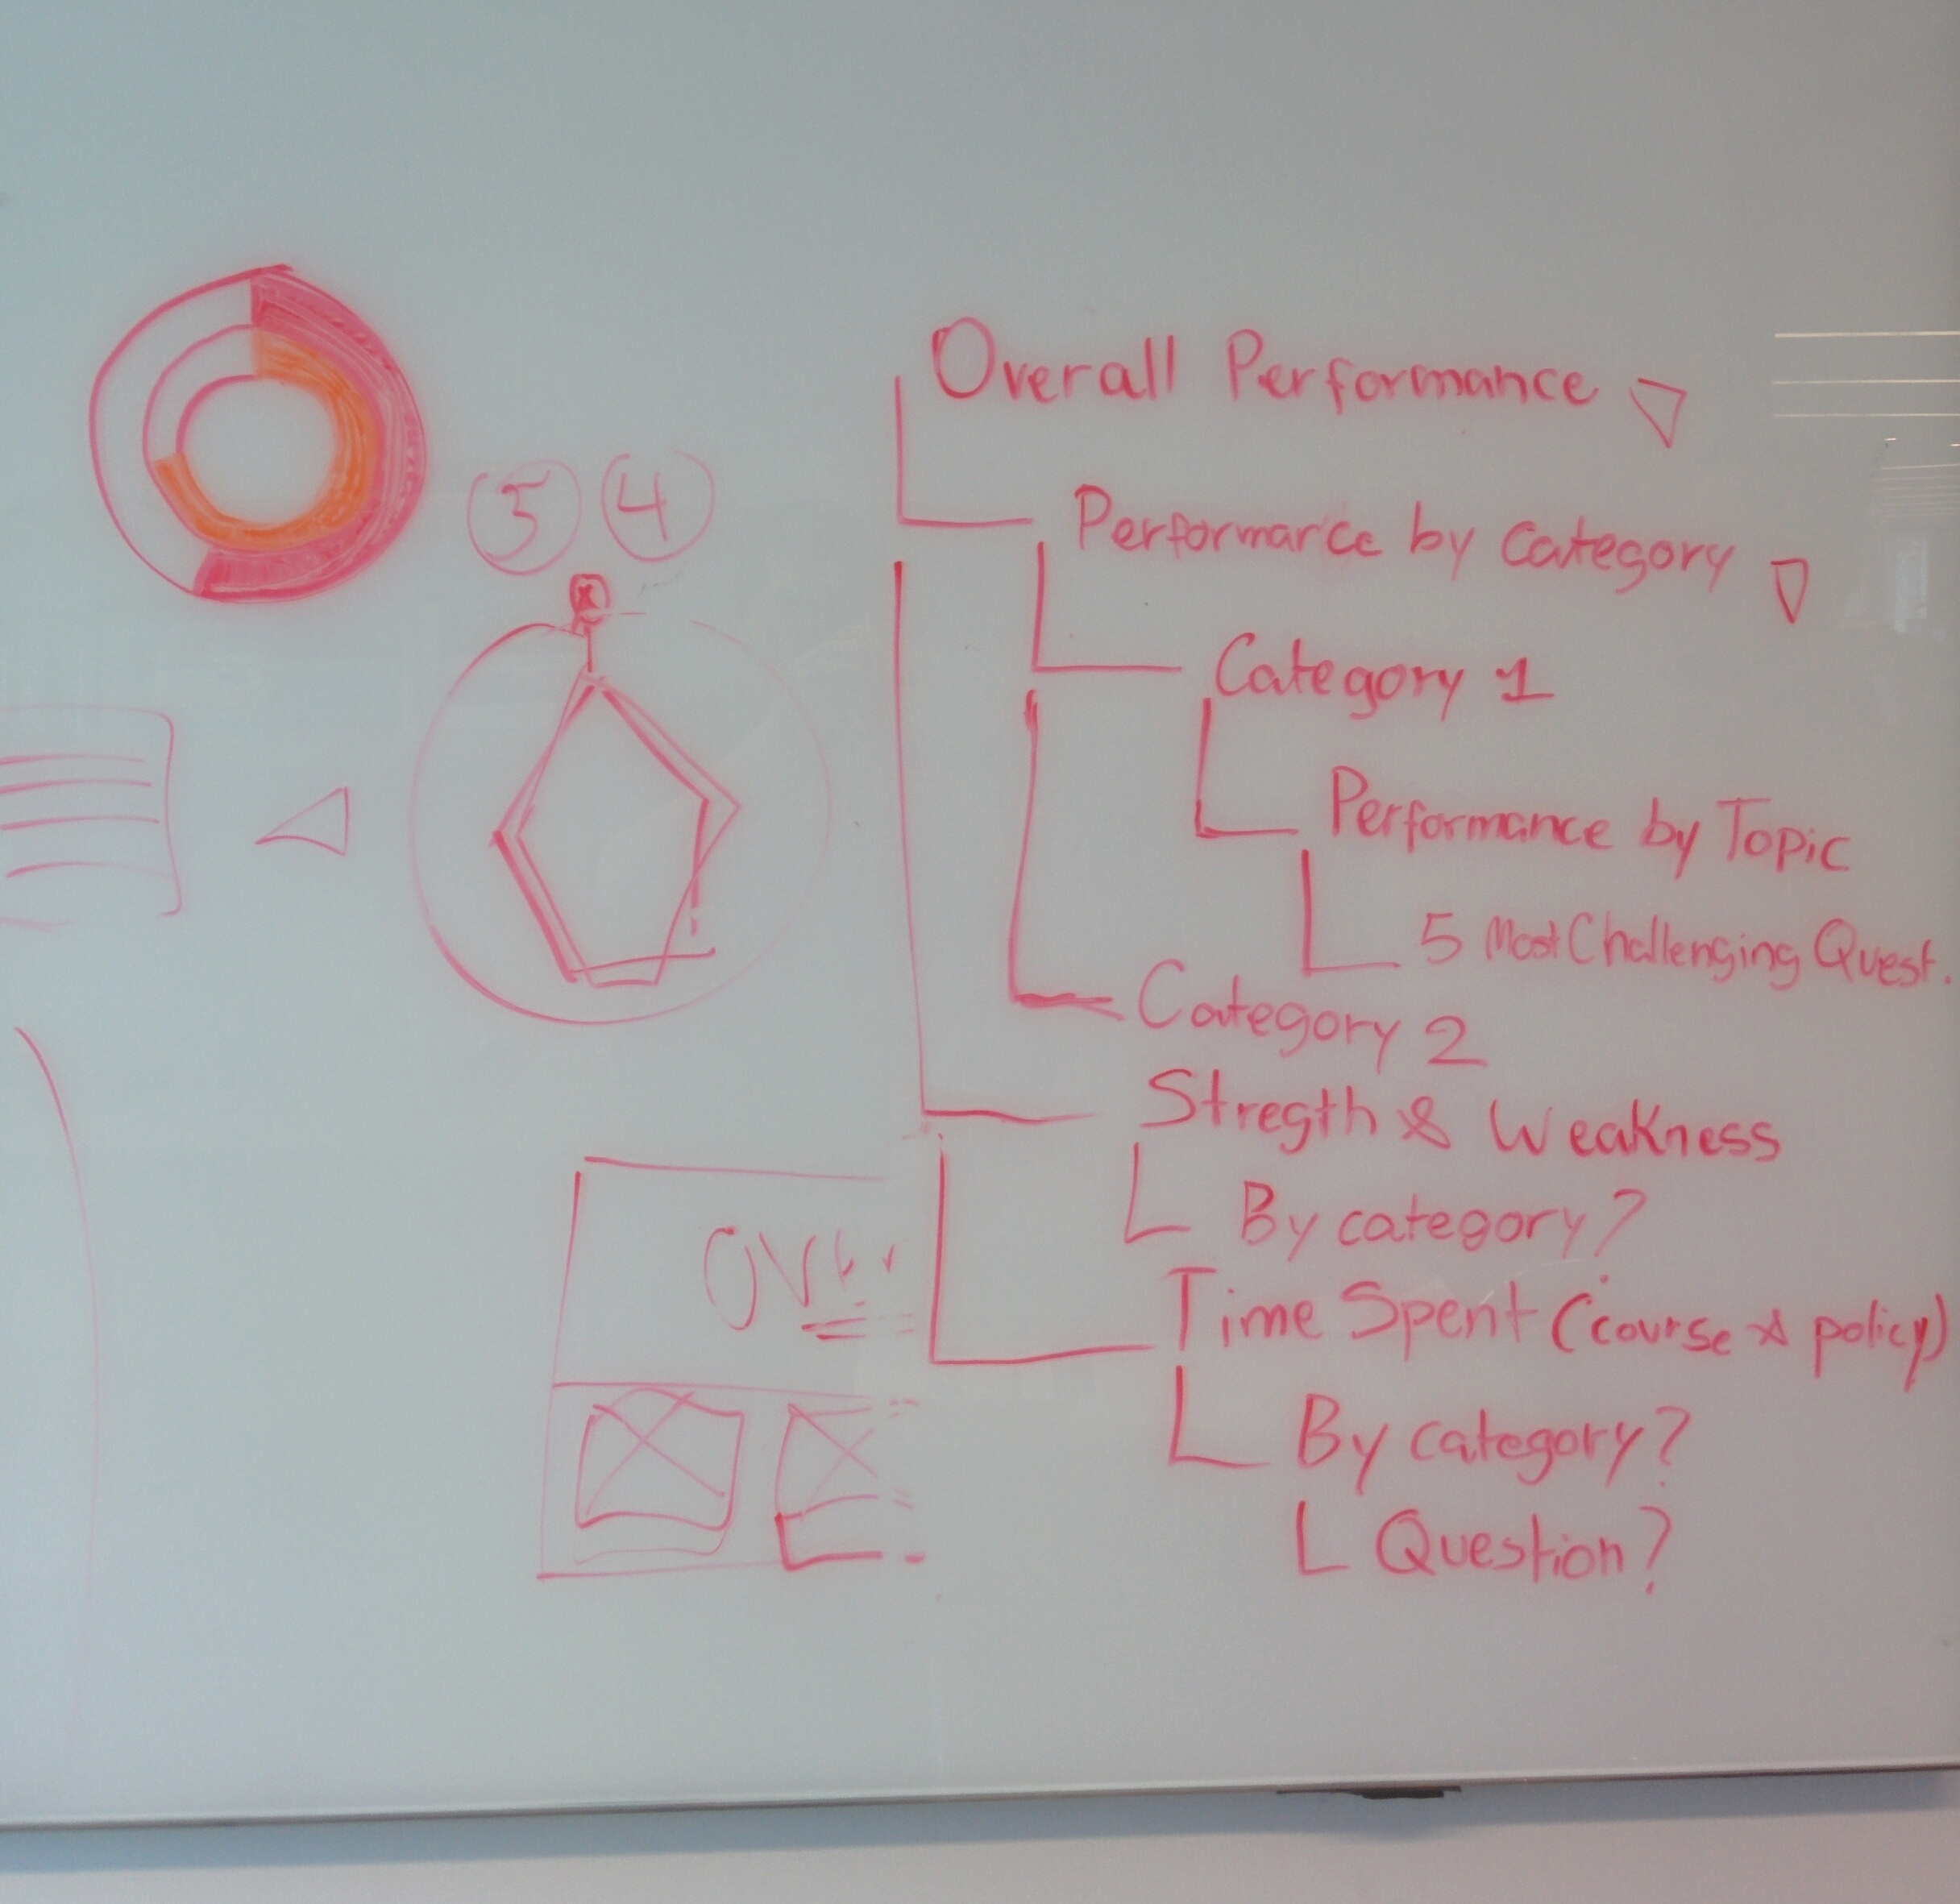 5 4
x
Overall Performance
Performance by Category
Category 1
Performance by Topic
5 Most Challenging Quest.
Category 2
Stregth & Weakness
By category?
Time Spent (course & policy)
By category?
Question?